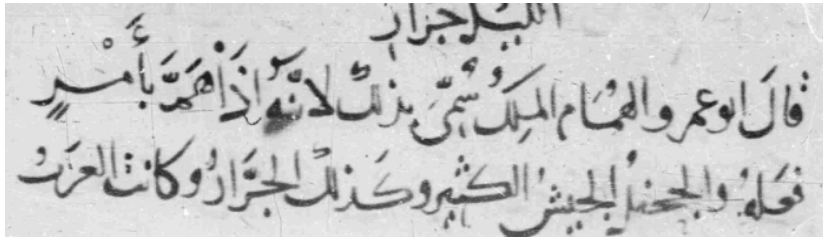 الليل جرار
قالَ ابو عمرو والهُمَام الملِكُ سُمِّىَ بذلكَ لانَّهُ اِذَا هَمَّ بأَمْرٍ
فعلهُ والجحفلُ الجيشُ الكثير وكَذلك الجرَّارُ وكانت العرَبُ